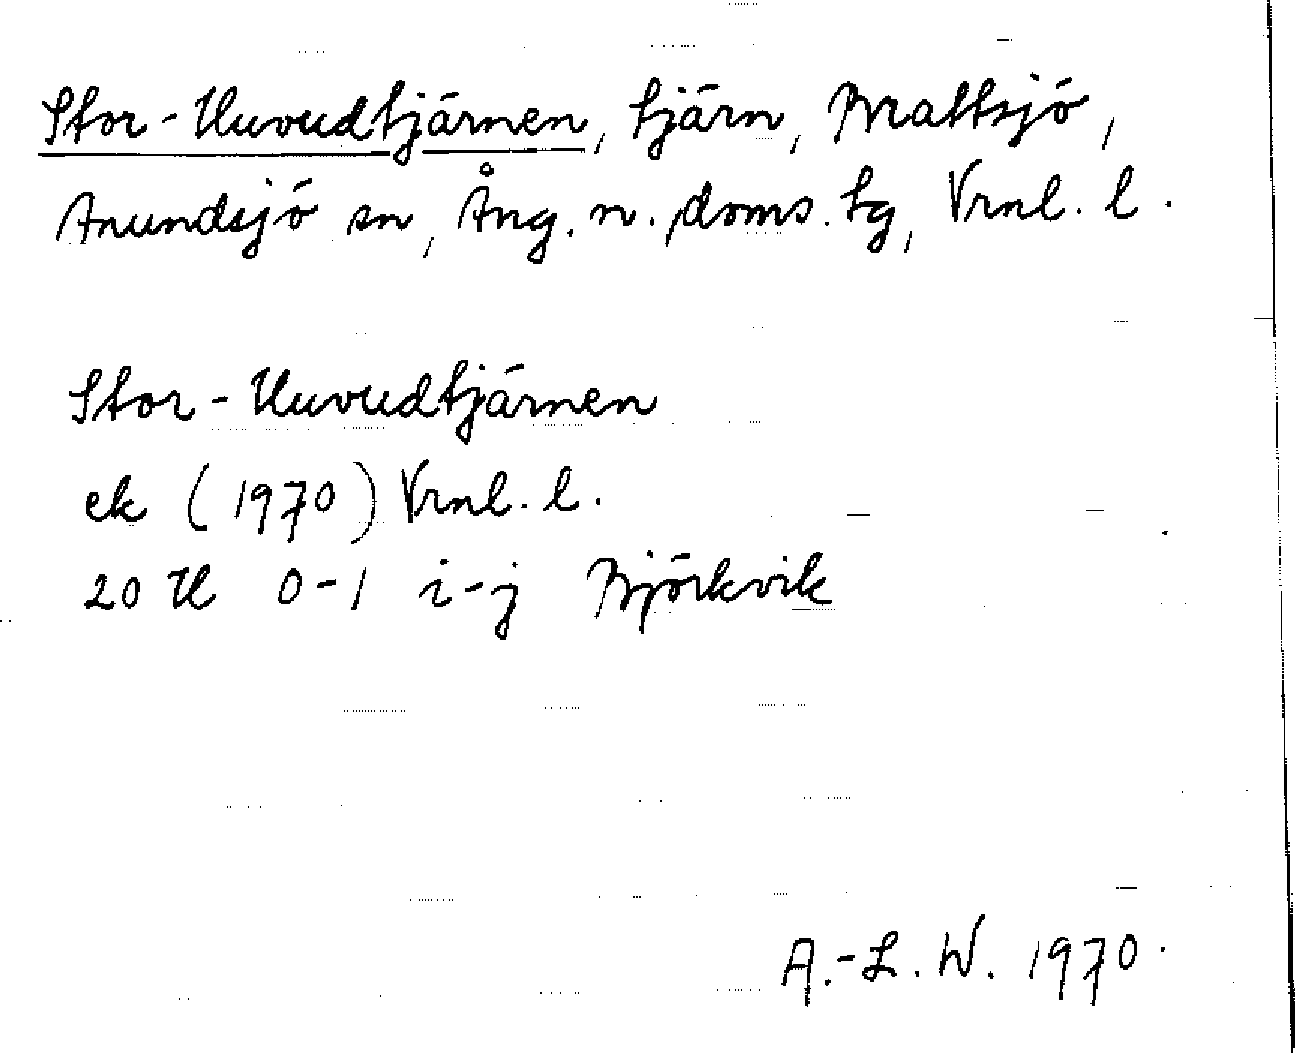 Stor-Huvudtjärnen, tjärn, Brattsjö,
Anundsjö sn, Ång. n. doms. tg, Vrnl. l.
Stor-Huvudtjärnen
ek (1970) Vrnl. l.
20 H 0-1 i-j Björkvik
A.-L. W. 1970.